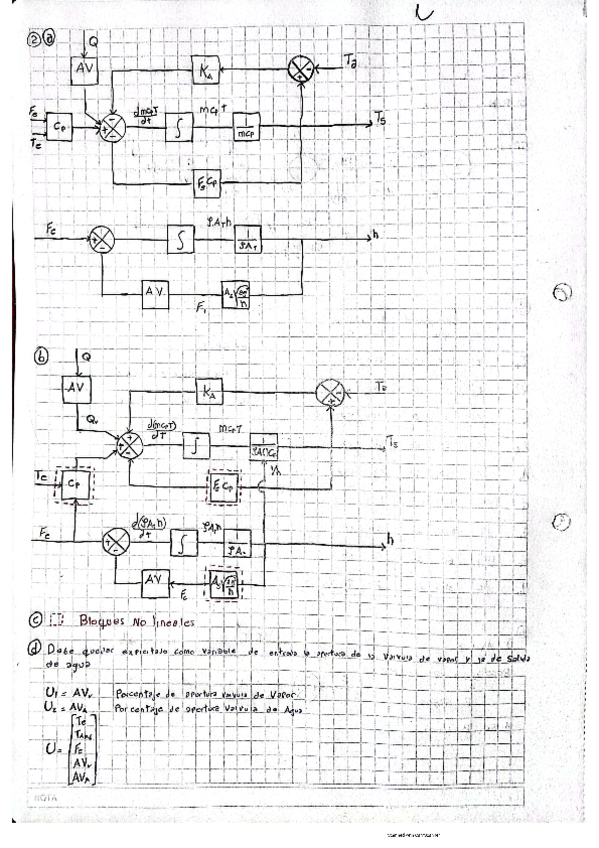 ② ⓐ
Q
AV
K_A
T_a
F_e
T_e
C_P
d mc_PT / dt
∫
mc_P T
1 / mc_P
T_s
F_s C_P
F_e
∫
ρA_T h
1 / ρA_T
h
AV
F_s
ⓑ
Q
AV
K_A
T_a
Q_v
d(mc_PT) / dT
∫
mc_P T
T_s
1/h
T_e
C_P
F_s C_P
F_e
d(ρA_T h) / dt
∫
h
AV
ⓒ Bloques No lineales
ⓓ Debe quedar explicitado como variable de entrada la apertura de la Valvula de vapor y la de Salida
de agua
U₁ = AVᵥ Porcentaje de apertura valvula de Vapor
U₂ = AV_A Porcentaje de apertura Valvula de Agua
U = [ Te
T_Amb
F_e
AVᵥ
AV_A ]
NOTA